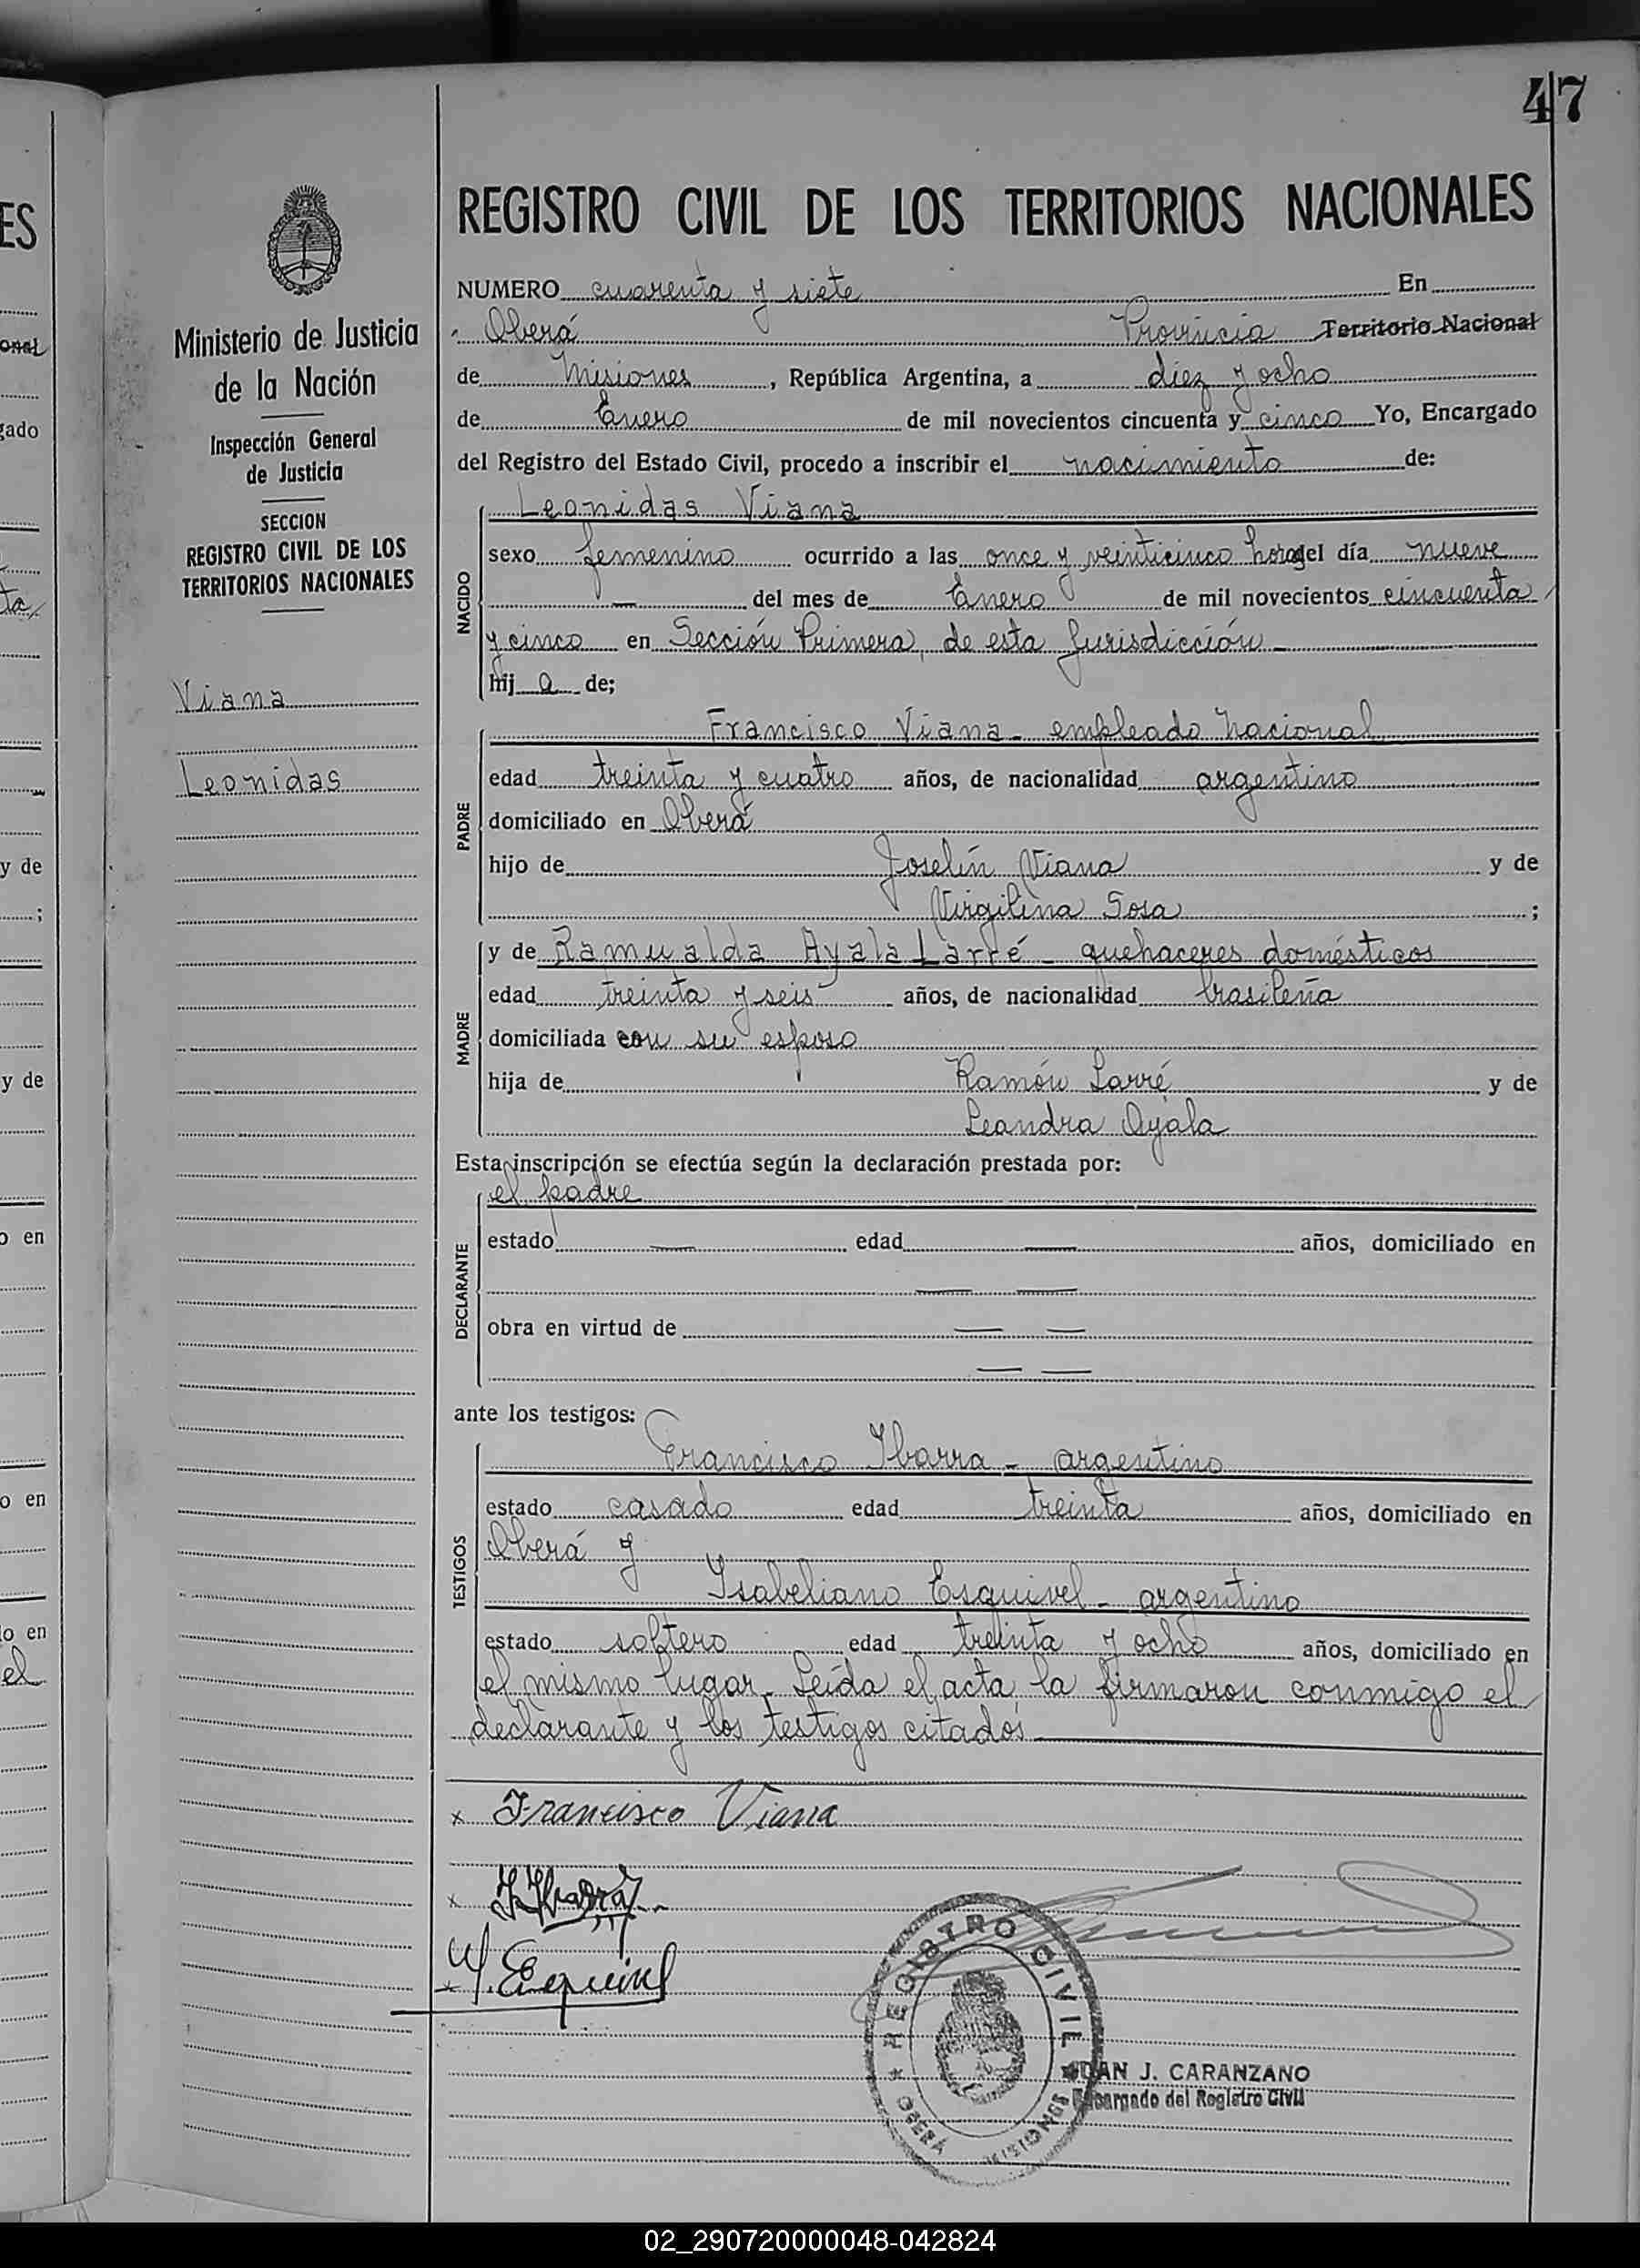 47
REGISTRO CIVIL DE LOS TERRITORIOS NACIONALES
Ministerio de Justicia
de la Nación
Inspección General
de Justicia
SECCION
REGISTRO CIVIL DE LOS
TERRITORIOS NACIONALES
Viana
Leonidas
NUMERO cuarenta y siete En
Oberá Provincia Territorio Nacional
de Misiones, República Argentina, a diez y ocho
de Enero de mil novecientos cincuenta y cinco Yo, Encargado
del Registro del Estado Civil, procedo a inscribir el nacimiento de:
NACIDO
Leonidas Viana
sexo femenino ocurrido a las once y veinticinco horas del día nueve
— del mes de Enero de mil novecientos cincuenta
y cinco en Sección Primera, de esta Jurisdicción -
hij a de;
PADRE
Francisco Viana - empleado Nacional
edad treinta y cuatro años, de nacionalidad argentino
domiciliado en Oberá
hijo de Joselín Viana y de
Virgilina Sosa ;
MADRE
y de Ramualda Ayala Larré - quehaceres domésticos
edad treinta y seis años, de nacionalidad brasileña
domiciliada con su esposo
hija de Ramón Larré y de
Leandra Ayala
Esta inscripción se efectúa según la declaración prestada por:
DECLARANTE
el padre
estado — edad — años, domiciliado en
— —
obra en virtud de — —
— —
ante los testigos:
TESTIGOS
Francisco Ibarra - argentino
estado casado edad treinta años, domiciliado en
Oberá y
Isabeliano Esquivel - argentino
estado soltero edad treinta y ocho años, domiciliado en
el mismo lugar. Leída el acta la firmaron conmigo el
declarante y los testigos citados -
x Francisco Viana
x Ibarra
x Esquivel
REGISTRO CIVIL
OBERÁ MISIONES
JUAN J. CARANZANO
Encargado del Registro Civil
02_290720000048-042824